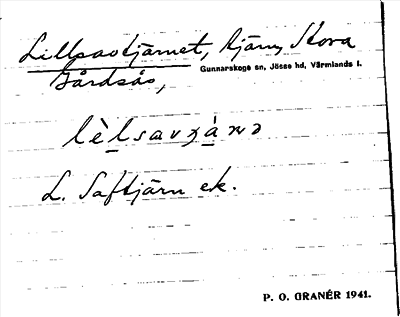 Lillsavtjärnet, tjärn, Stora
Gunnarskogs sn, Jösse hd, Värmlands l.
Gårdsås,
lè̱lsavʒà̱nə
L. Saftjärn ek.
P. O. GRANÉR 1941.